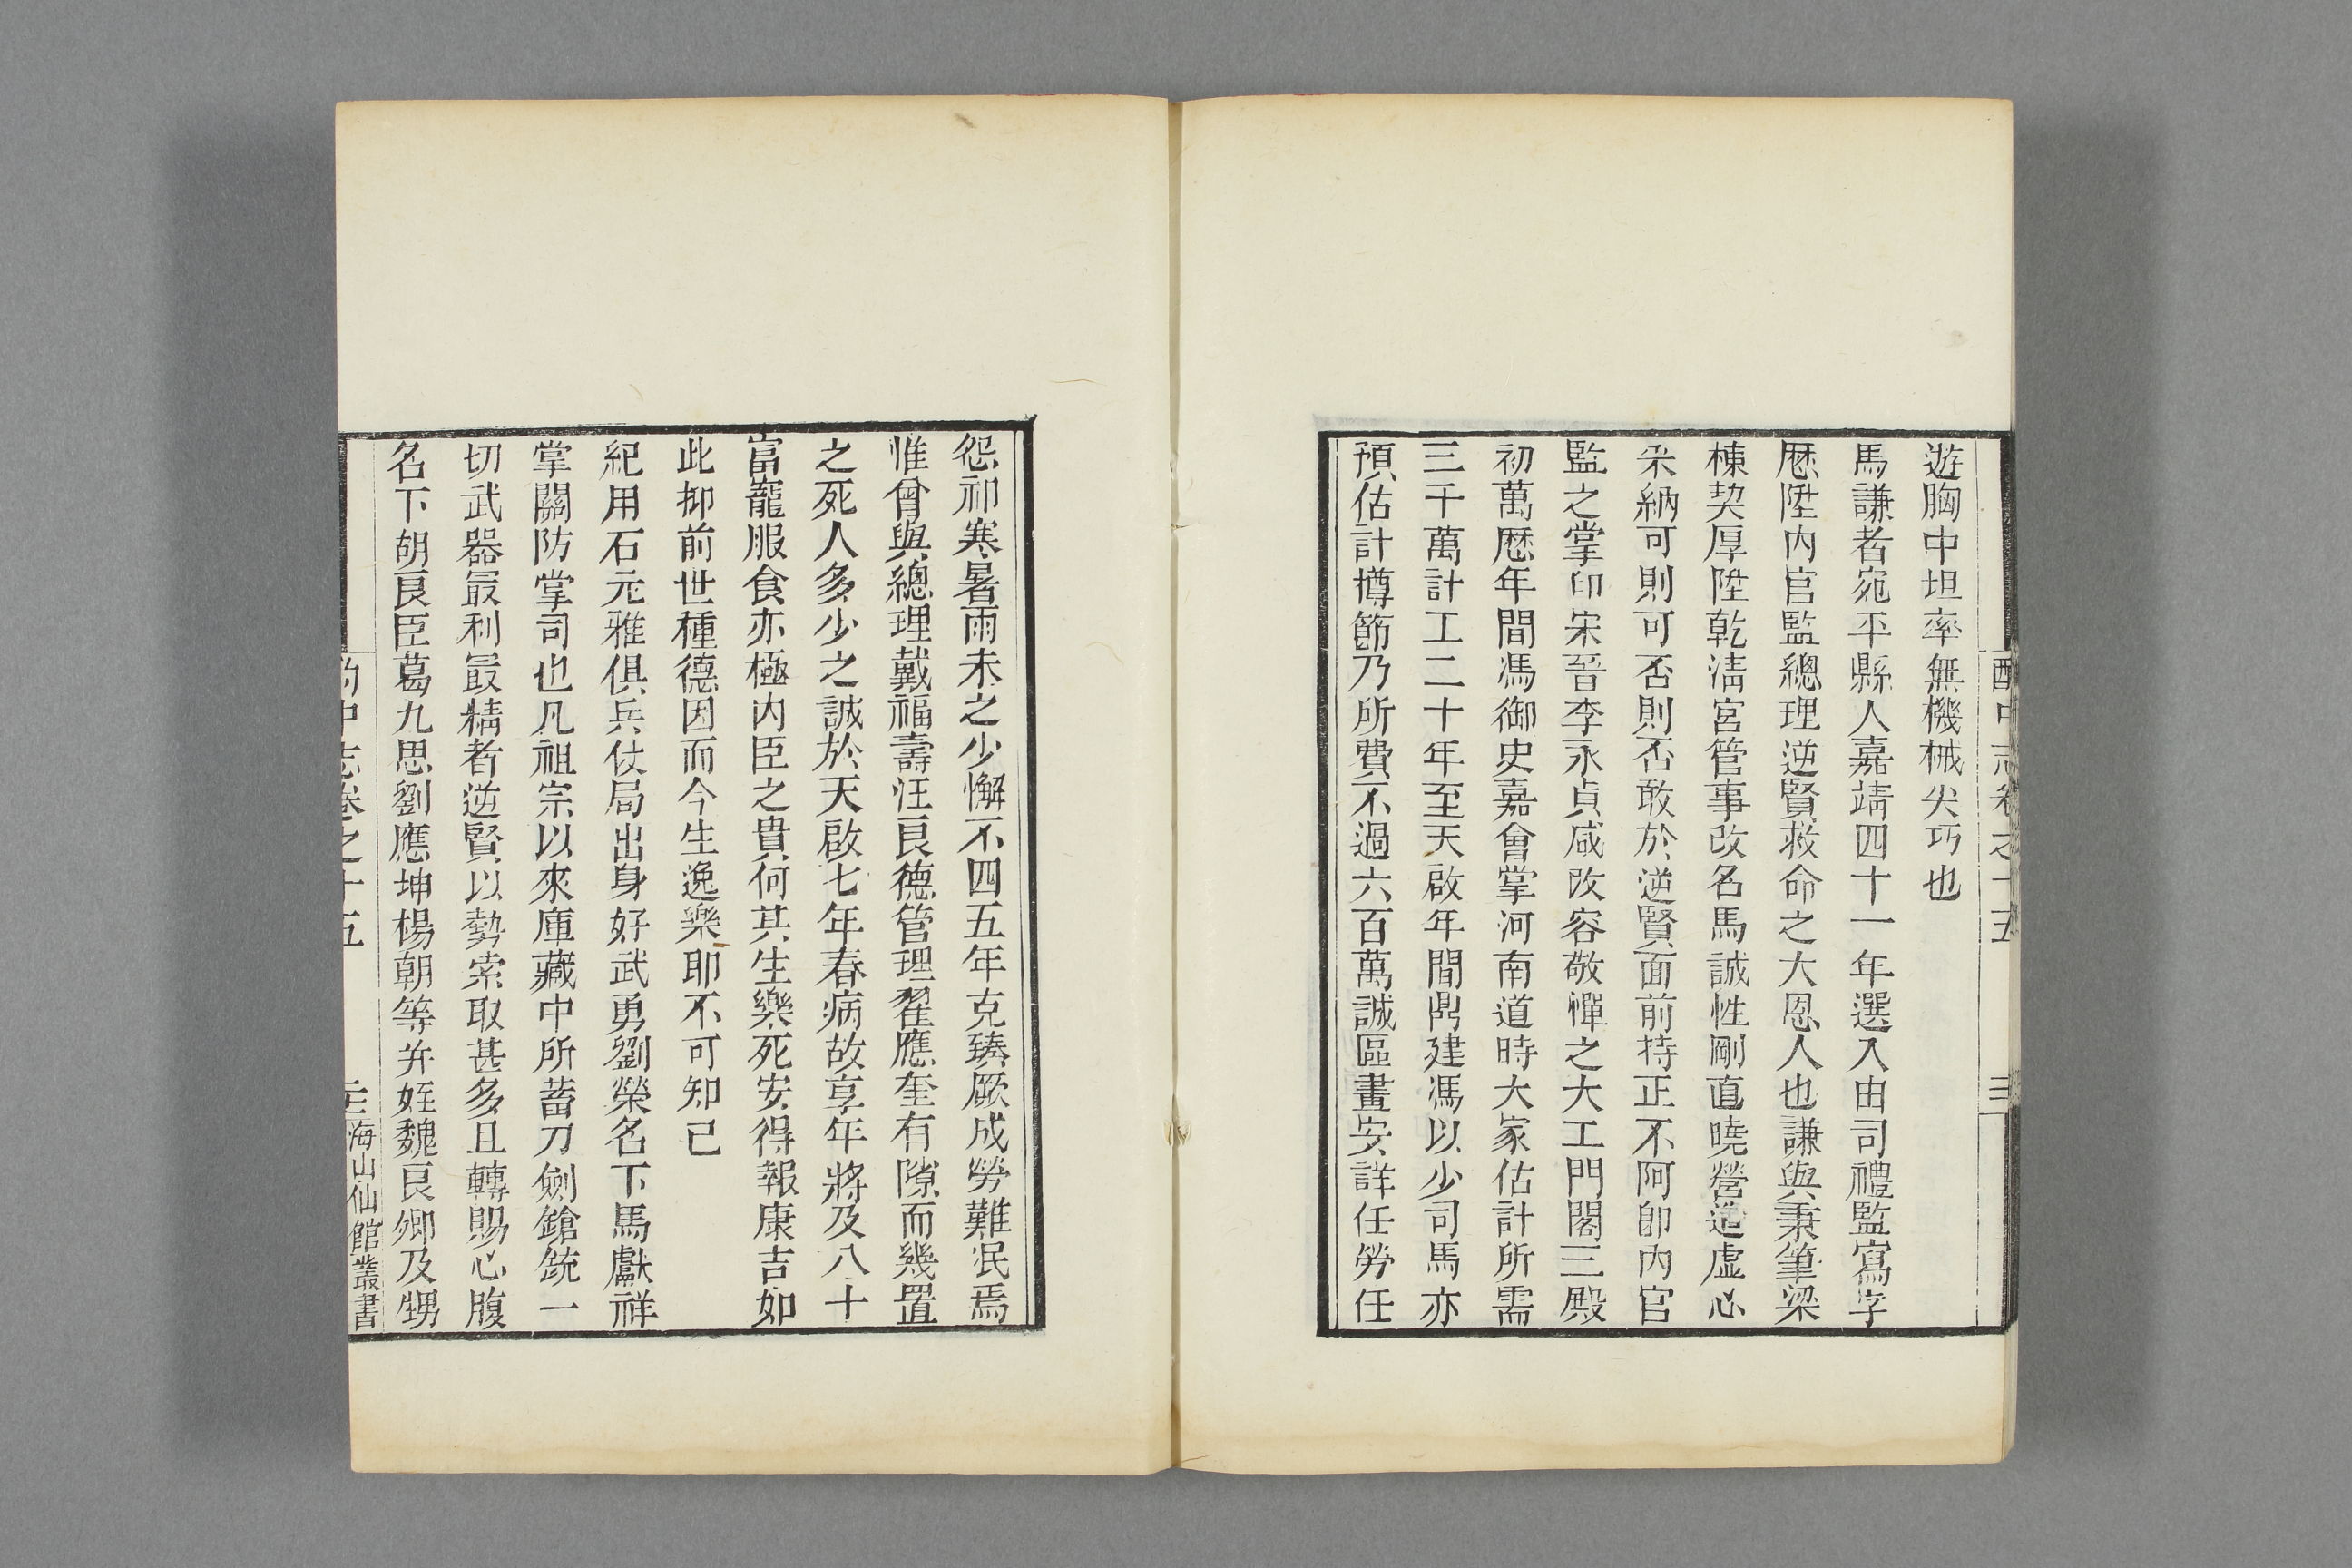 酌中志卷之十五
遊胸中坦率無機械尖巧也
馬謙者宛平縣人嘉靖四十一年選入由司禮監寫字
歷陞內官監總理逆賢救命之大恩人也謙與秉筆梁
棟契厚陞乾清宮管事改名馬誠性剛直曉營造虛心
采納可則可否則否敢於逆賢面前持正不阿卽內官
監之掌印宋晉李永貞咸改容敬憚之大工門閣三殿
初萬歷年間馮御史嘉會掌河南道時大家估計所需
三千萬計工二十年至天啟年間鼎建馮以少司馬亦
預估計撙節乃所費不過六百萬誠區畫安詳任勞任
怨祁寒暑雨未之少懈不四五年克臻厥成勞難泯焉
惟曾與總理戴福壽汪良德管理翟應奎有隙而幾置
之死人多少之誠於天啟七年春病故享年將及八十
富寵服食亦極內臣之貴何其生樂死安得報康吉如
此抑前世種德因而今生逸樂耶不可知已
紀用石元雅俱兵仗局出身好武勇劉榮名下馬獻祥
掌關防掌司也凡祖宗以來庫藏中所蓄刀劍鎗銃一
切武器最利最精者逆賢以勢索取甚多且轉賜心腹
名下胡良臣葛九思劉應坤楊朝等并姪魏良卿及甥
酌中志卷之十五
海山仙館叢書